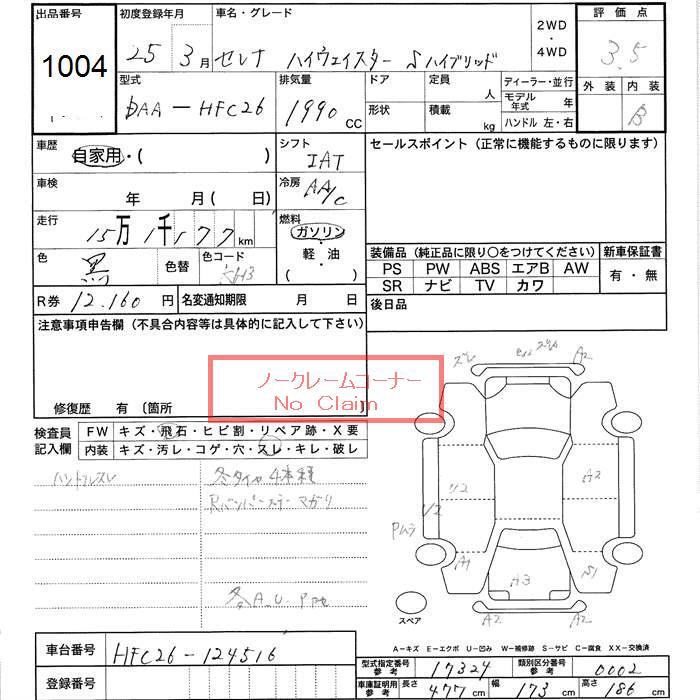 出品番号 初度登録年月 車名・グレード 2WD・4WD 評価点
1004 25 3月 セレナ ハイウェイスター S ハイブリッド 3.5
型式 排気量 ドア 定員 人 ディーラー・並行 外装 内装
DAA-HFC26 1990 CC 形状 積載 kg モデル年式 年 B
ハンドル 左・右
車歴 自家用・( ) シフト IAT セールスポイント(正常に機能するものに限ります)
車検 年 月( 日) 冷房 AA/C
走行 15万1千177km 燃料 ガソリン・軽油・( )
色 黒 色替 色コード 装備品(純正品に限り○をつけてください) 新車保証書
PS PW ABS エアB AW 有・無
SR ナビ TV カワ
R券 12.160円 名変通知期限 月 日 後日品
注意事項申告欄(不具合内容等は具体的に記入して下さい)
ノークレームコーナー
No Claim
修復歴 有〔箇所 〕
検査員記入欄 FW キズ・飛石・ヒビ割・リペア跡・X要
内装 キズ・汚レ・コゲ・穴・スレ・キレ・破レ
ハンドルスレ 冬タイヤ4本積
Rバンパーステーマガリ
ズレ A2
A2
Y2
U2
Pムラ
A1 A3 S1
A2 A2
スペア
A-キズ E-エクボ U-凹み W-補修跡 S-サビ C-腐食 XX-交換済
車台番号 HFC26-124516
型式指定番号参考 17324 類別区分番号参考 0002
登録番号
車庫証明用参考 長さ 477cm 幅 173cm 高さ 186cm